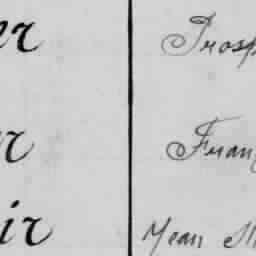 er Prosp
er Fran
ir Jean